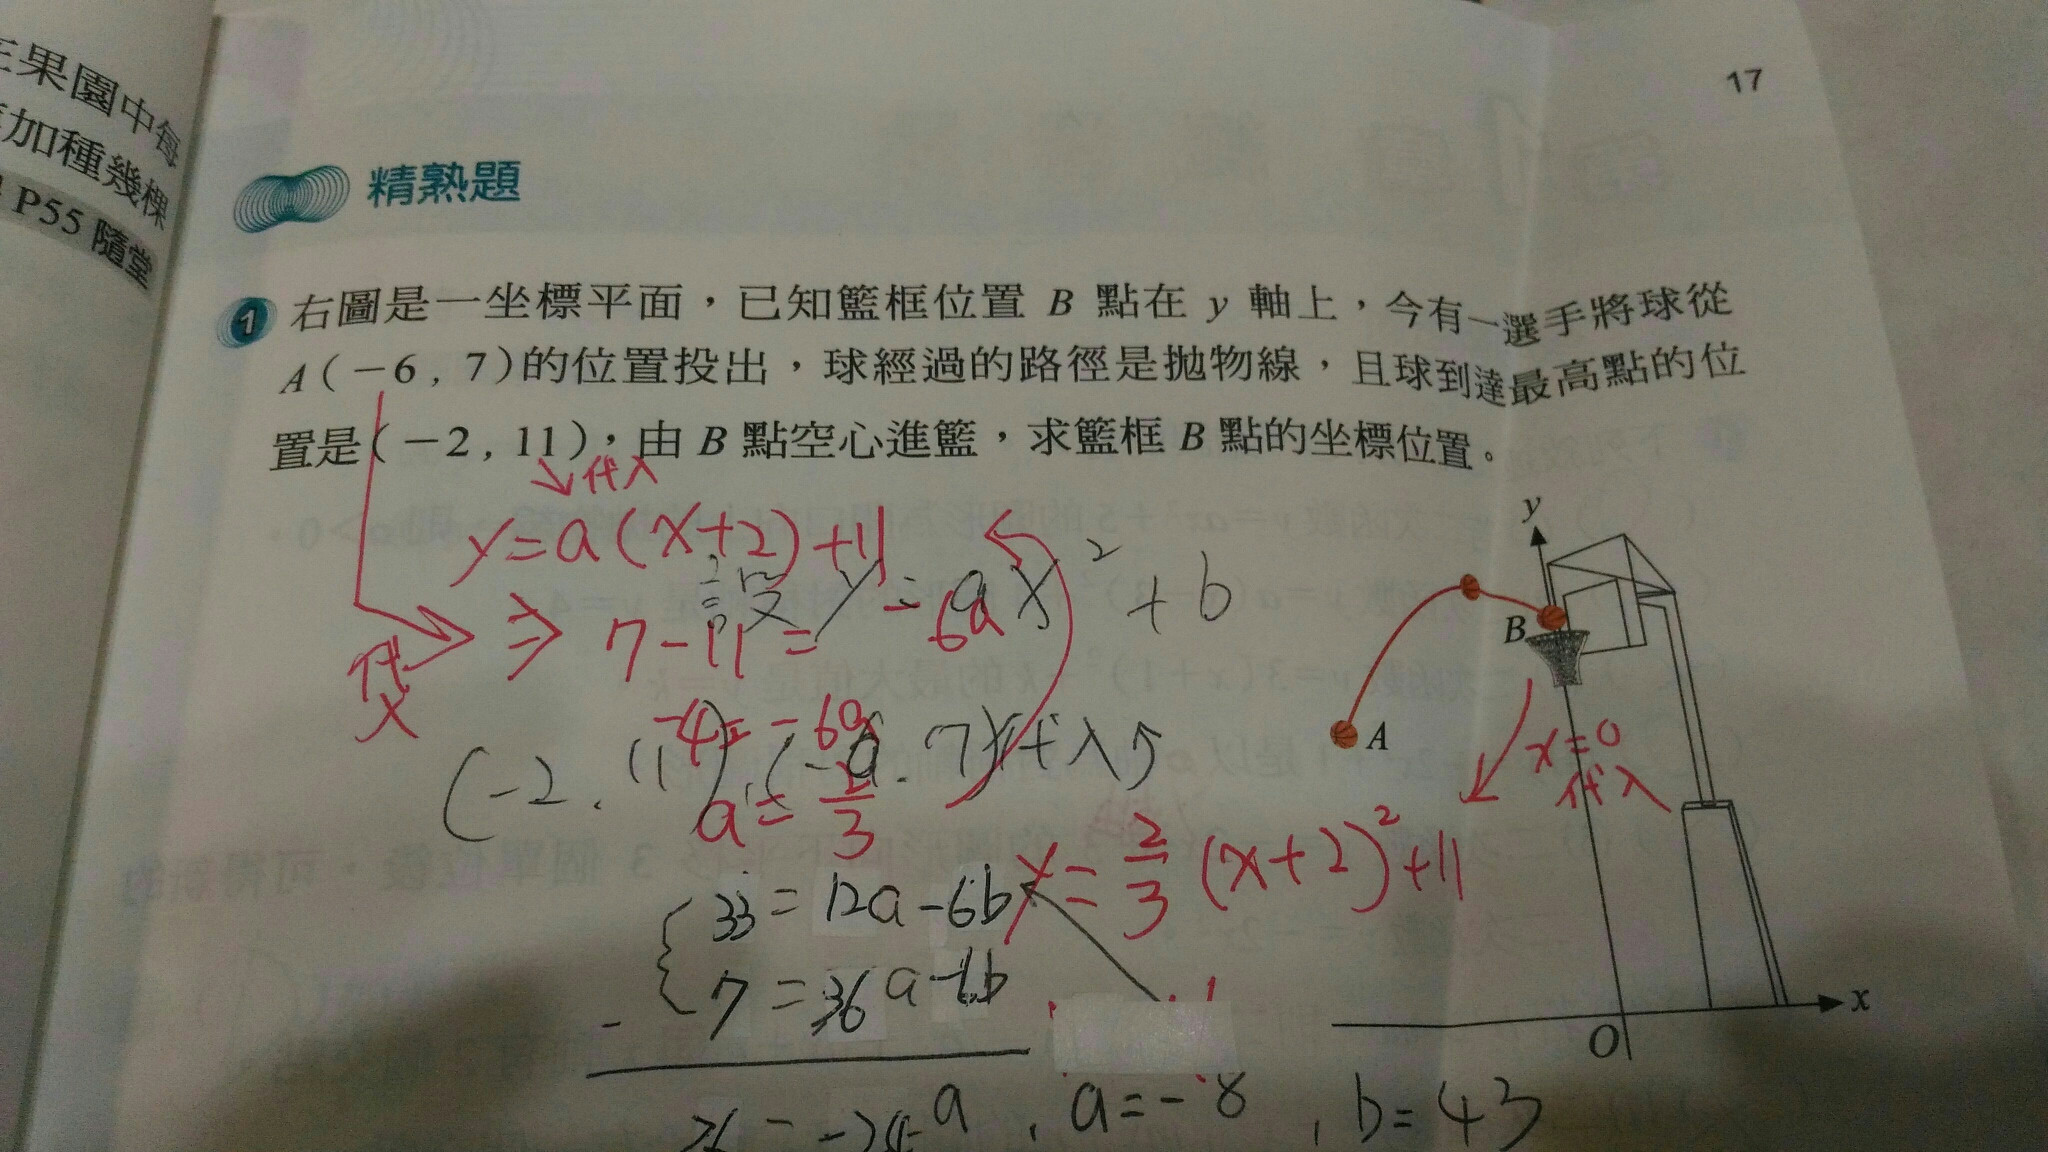 17
果園中每
加種幾棵
P55 隨堂
精熟題
1 右圖是一坐標平面，已知籃框位置 B 點在 y 軸上，今有一選手將球從
A（－6 , 7）的位置投出，球經過的路徑是拋物線，且球到達最高點的位
置是（－2 , 11），由 B 點空心進籃，求籃框 B 點的坐標位置。
代入
y=a(x+2)+11
設 y=ax²+b
代入
⇒ 7-11=-6a
-4=-6a
(-2, 11) 7)代入
a=2/3
33=12a-6b
7=36a-6b
-
=-24a, a=-8, b=43
y
B
A
x=0
代入
y=2/3(x+2)²+11
O
x